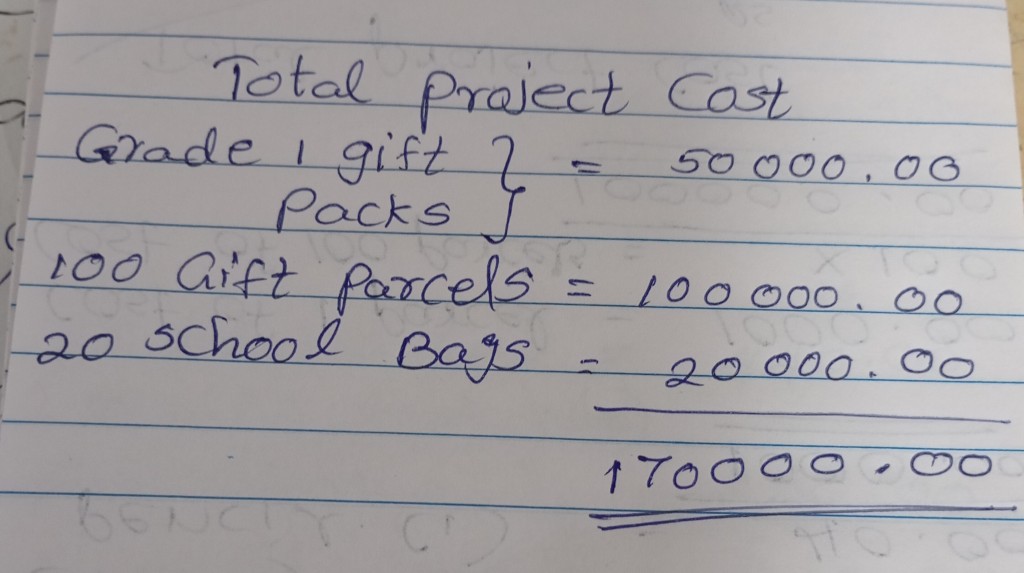 Total Project Cost
Grade 1 gift } = 50 000.00
Packs
100 Gift Parcels = 100 000.00
20 School Bags = 20 000.00
170000.00